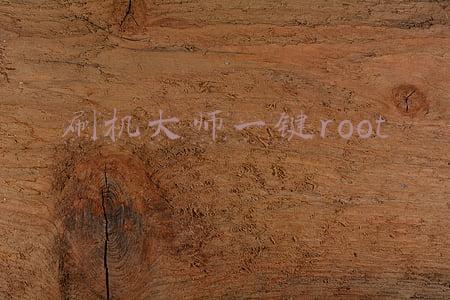 刷机大师一键root